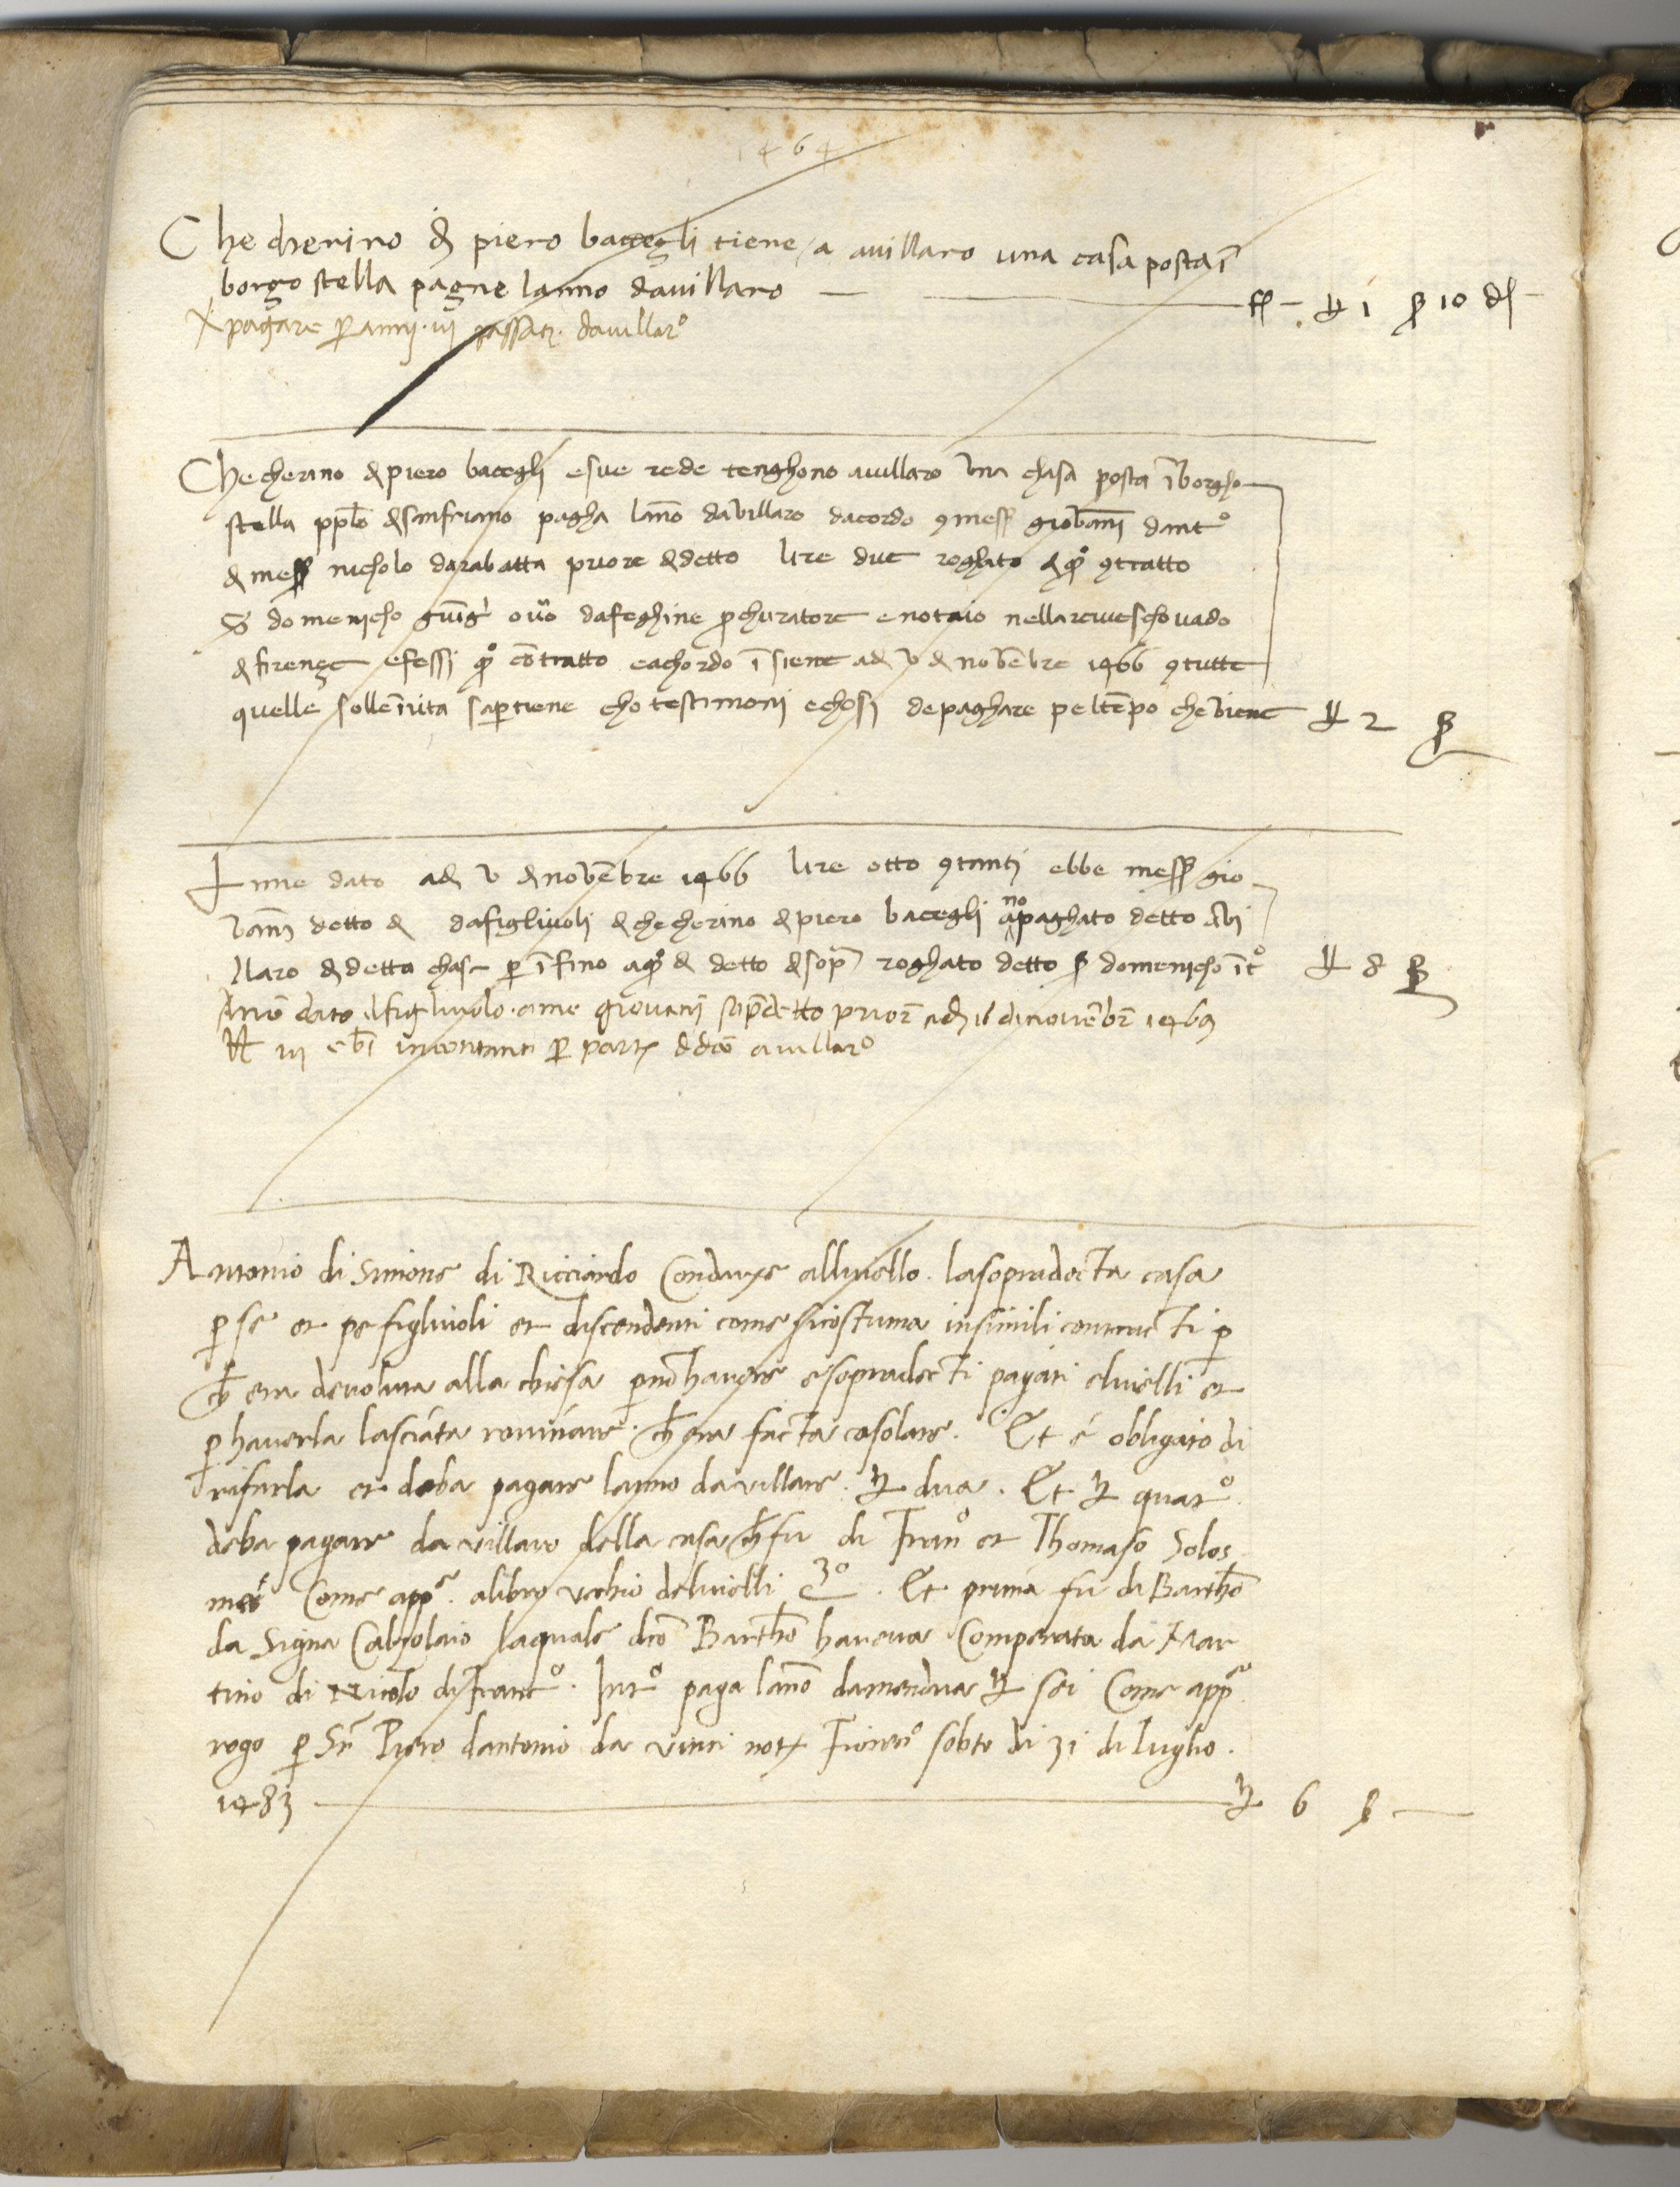 1464
Checherino di piero bacegli tiene a avillaro una casa posta ī
borgo stella pagne lanno davillaro — fl — ₶ 1 ꝑ 10 dl —
pagare ꝑ anni vi passati davillar°
Checherino di piero bacegli e sue rede tenghono avillaro una chasa posta ī borgho
stella ppl̄o di sanfriano pagha lan̄o davillaro dacordo 9 mess giovanī dant°
di mess nicholo darabatta priore di detto lire due roghato di q° 9tratto
S domenicho guīg ovo dafeghine prochuratore e notaio nellarciveschovado
di firençe efessi q° cōtratto eachordo īsieme adi v di novēbre 1466 9 tutte
quelle sollenita sapartiene cho testimoni echosi depaghare peltēpo cheviene ₶ 2 ꝑ
Enne dato adi v di novēbre 1466 lire otto 9tanti ebbe mess gio
vanni detto di dafiglivoli di checherino di piero bacegli ano paghato detto avi
llaro di detta chasa ꝑ īfino a q° di detto di sopra roghato detto ꝑ domenicho īt° ₶ 8 ꝑ
dato il figlivolo a me giovanī sopradetto priore adi 11 di novēbr 1469
₶ vi ebi incontanti ꝑ parte di dco avillar°
Antonio di Simone di Ricciardo Conduxe allivello lasopradecta casa
ꝑ se et pe figlivoli et discendenti come sicostuma insimili contracti ꝑ
ch̄ era devoluta alla chiesa ꝑ nō havere esopradecti pagati elivelli et
ꝑ haverla lasciata rovinare ch̄ era facta casolare. Et é obligato di
rifarla et deba pagare lanno davillare ₶ dua. Et ₶ quat°
deba pagare davillare della casa ch̄ fu di Fran° et Thomaso Solos
mei Come app°. alibro vechio delivelli 3° c. Et prima fu di Barthō
da Signa Calzolaio laquale dcō Barthō haveva Comperata da Mar
tino di Nicolo di Franc°. Int° paga lanō damendua ₶ sei Come app°
rogo ꝑ Sr Piero dantonio da vinci not Fioren° sobto di 31 di luglio.
1483 — ₶ 6 ꝑ —